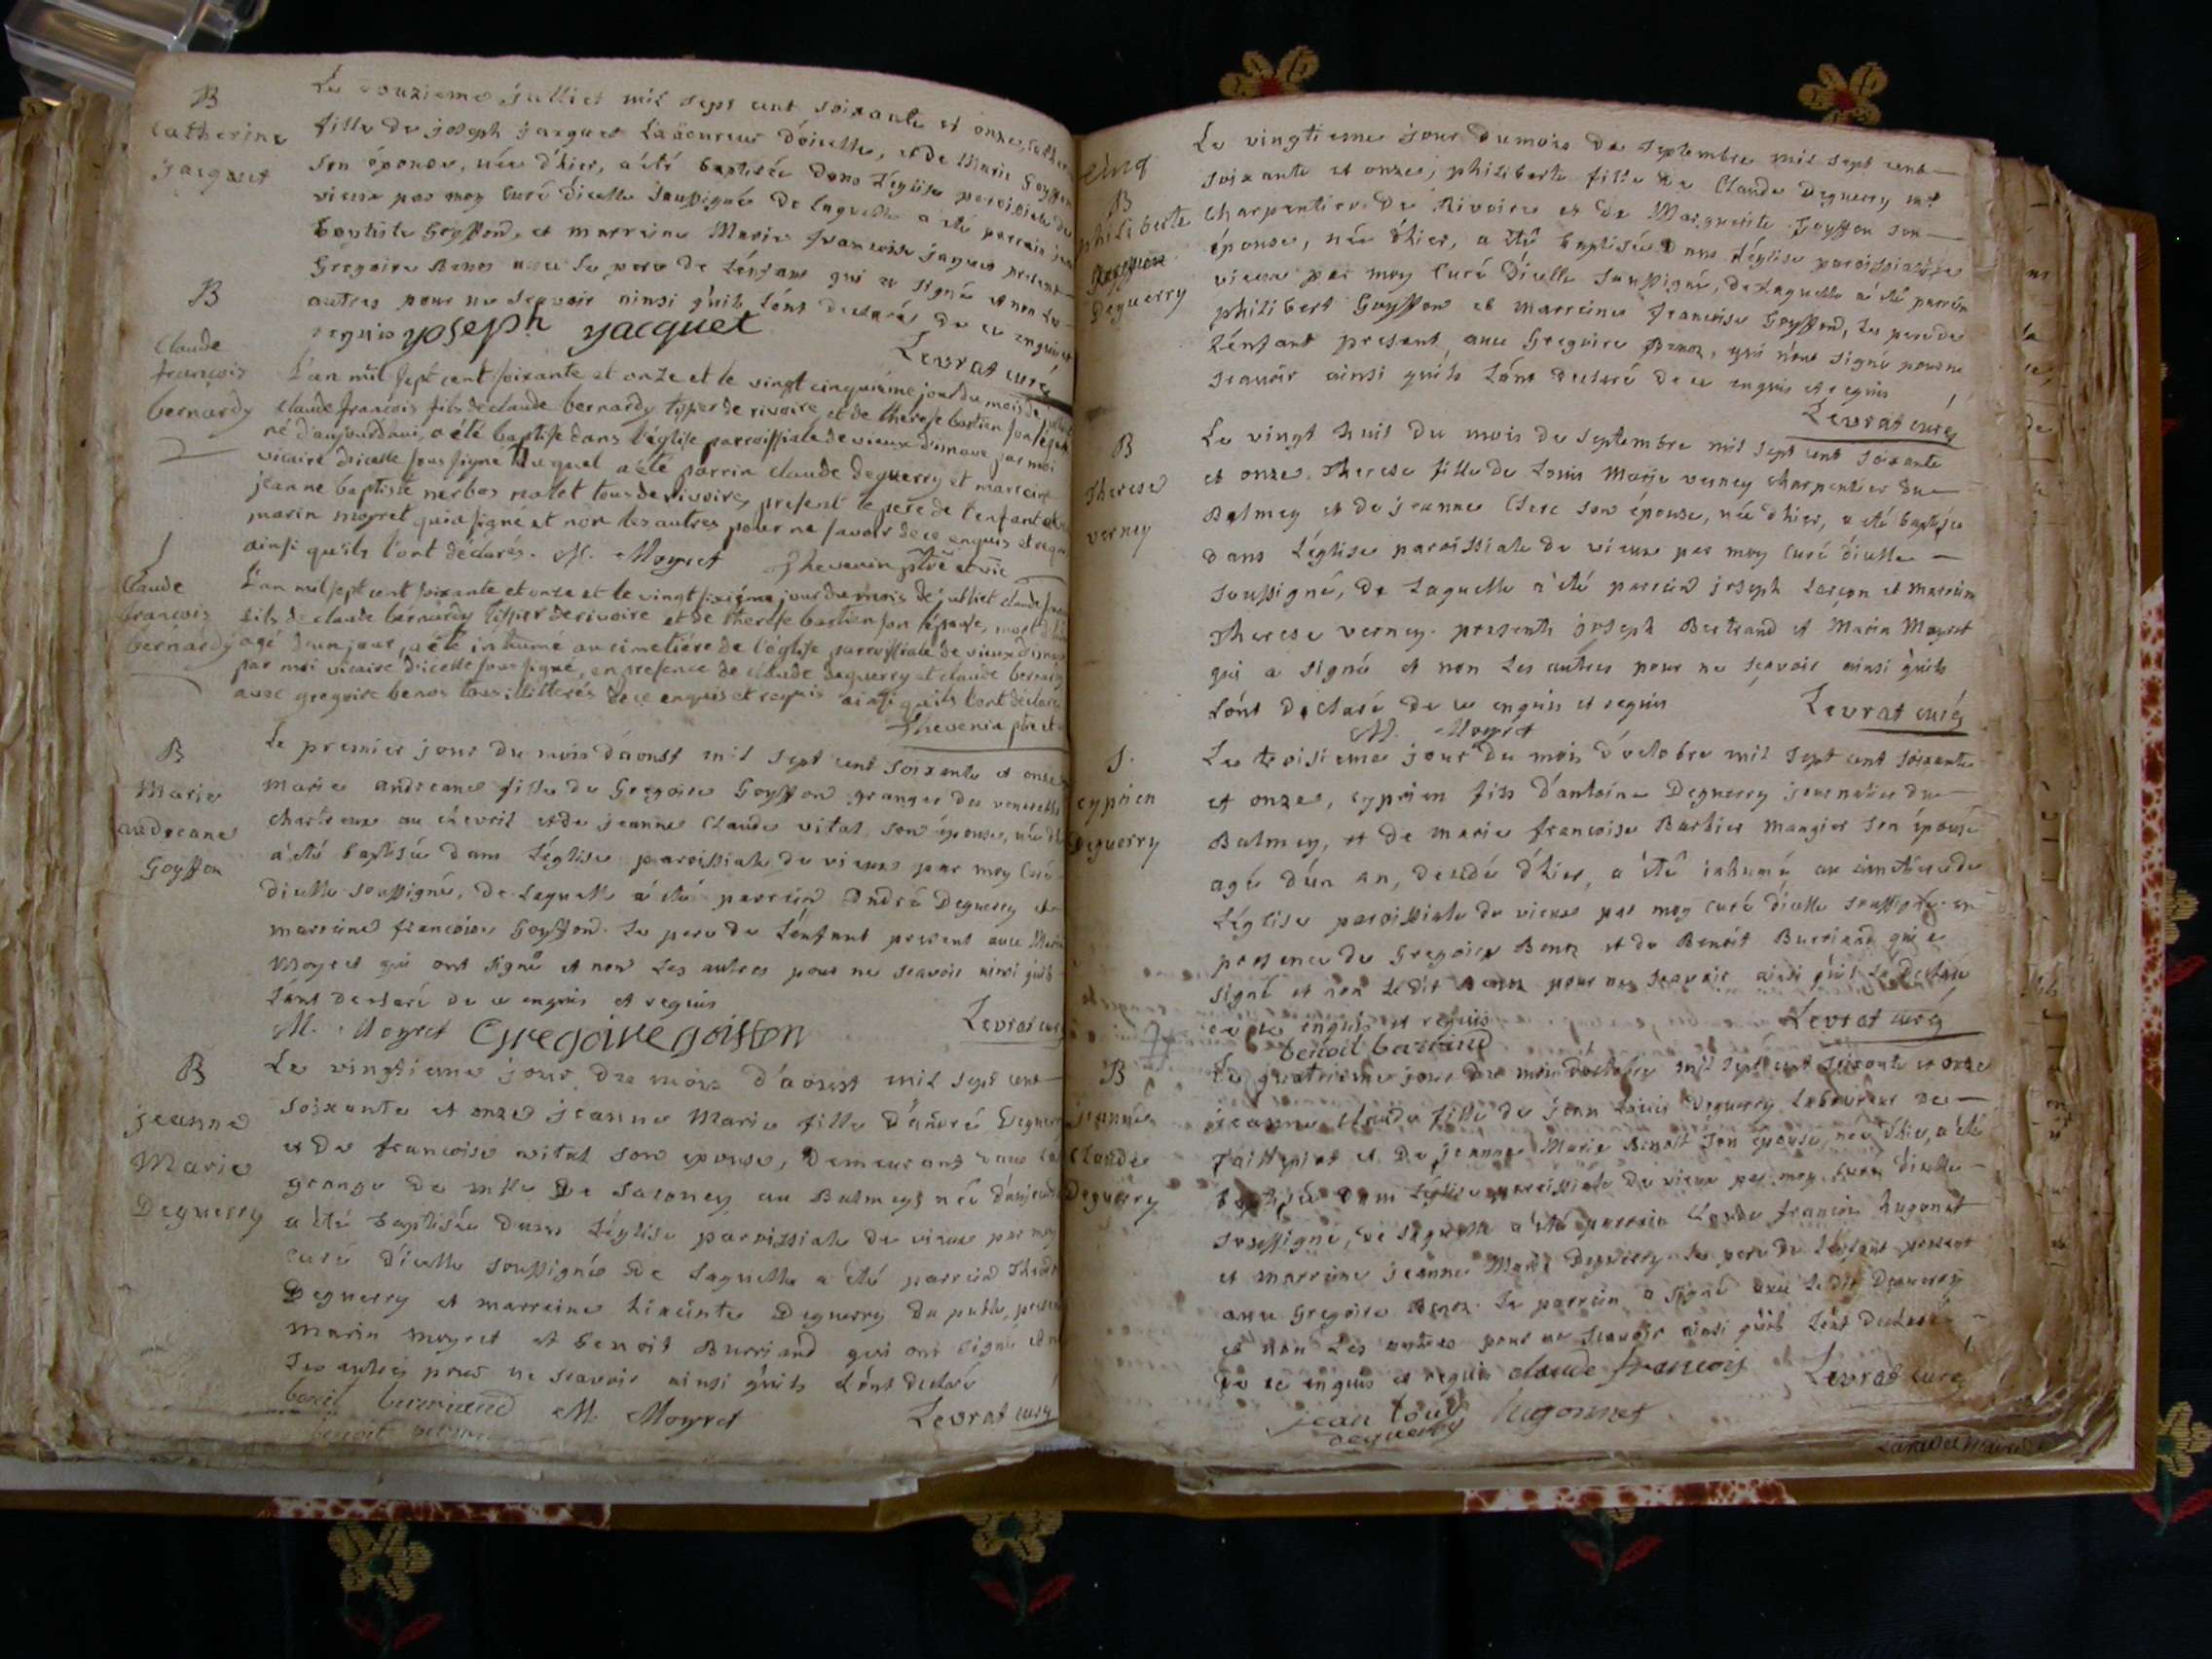 B
Catherine
jacquet
Le douzieme julliet mil sept cent soixante et onze, Cather
fille de joseph jacquet Laboureur d'icelle, et de Marie Goyffon
son épouse, née d'hier, a été baptisée dans L'église paroissiale de
vieux par moy Curé d'icelle soussigné de laquelle a été parrain jean
Baptiste Goyffon, et marraine Marie francoise jaques present
Gregoire Benos avec Le pere de Lénfant qui a signé et non Les
autres pour ne scavoir ainsi quils Lónt declarés de ce enquis et
requis joseph jacquet
Levrat curé
B
Claude
françois
bernardy
L'an mil sept cent soixante et onze et le vingt cinquiéme jour du mois de juilliet
claude françois fils de claude bernardy tissier de rivoire et de therese bastien son épouse
né d'aujourdhui, a été baptisé dans l'église parroissiale de vieux d'isnave par moi
vicaire d'icelle sous signé duquel a été parrin claude deguerry et marreine
jeanne baptiste nerbos natet tous de rivoire, present le pere de l'enfant et
marin moyret qui a signé et non les autres pour ne savoir de ce enquis et requis
ainsi qu'ils l'ont déclarés. M. Moyret Thevenin ptre et vic
S
Claude
françois
bernardy
L'an mil sept cent soixante et onze et le vingt sixiéme jour du mois de julliet claude fran
fils de claude bernardy tissier de rivoire et de therese bastien son épouse, mort d'hier
agé d'un jour, a été inhumé au cimetiére de l'église parroissiale de vieux d'isnave
par moi vicaire d'icelle sous signé, en presence de claude deguerry et claude bernardy
avec gregoire benos tous illitterés de ce enquis et requis ainsi quils l'ont déclarés
Thevenin ptre et
B
Marie
andreane
Goyffon
Le premier jour du mois d'aoust mil sept cent soixante et onze
Marie andreane fille de Gregoire Goyffon granger des venerables
chartreux au chevril et de jeanne Claude vital son épouse, née d'hi
a été baptisée dans L'église paroissiale de vieux par moy Curé
dicelle soussigné, de Laquelle a été parrain André Deguerry et
marraine francoise Goyffon. Le pere de Lénfant present avec Marin
Moyret qui ont signé et non Les autres pour ne scavoir ainsi quils
Lónt declaré de ce enquis et requis
M. Moyret Gregoire goiffon Levrat curé
B
jeanne
Marie
Deguerry
Le vingtieme jour du mois d'aoust mil sept cent
soixante et onze jeanne Marie fille d'andré Deguerry
et de francoise vital son epouse, demeurant dans la
grange de mlle De Saconey au Balmey née d'aujourd
a été baptisée dans L'église paroissiale de vieux par moy
curé d'icelle soussigné de Laquelle a été parrain
Deguerry et marraine hiacinte Deguerry du
marin moyret et benoit Burriand qui ont signé et non
Les autres pour ne scavoir ainsi quils Lónt declaré
benoit burriand M. Moyret Levrat curé
cinq
B
philiberte
Goyffon
Deguerry
Le vingtieme jour du mois de septembre mil sept cent
soixante et onze, philiberte fille de Claude Deguerry mt
charpentier de Rivoire et de Marguerite Goyffon son
épouse, née d'hier, a été baptisée dans L'église paroissiale de
vieux par moy Curé d'icelle soussigné, de Laquelle a été parrain
philibert Goyffon et marraine francoise Goyffon, Le pere de
Lénfant present, avec Gregoire Benoz, qui n'ont signé pour ne
scavoir ainsi quils Lónt declaré de ce enquis et requis
Levrat curé
B
Therese
verney
Le vingt huit du mois de septembre mil sept cent soixante
et onze Therese fille de Louis Marie verney charpentier du
Balmey et de jeanne Clerc son épouse, née d'hier, a été baptisée
dans L'église paroissiale de vieux par moy curé d'icelle
soussigné, de Laquelle a été parrain joseph Larçon et marraine
Therese verney. presents joseph Bertrand et Marin Moyret
qui a signé et non Les autres pour ne scavoir ainsi quils
Lónt declaré de ce enquis et requis Levrat curé
M. Moyret
S.
cyprien
Deguerry
Le troisieme jour du mois d'octobre mil sept cent soixante
et onze, cyprien fils d'antoine Deguerry journalier du
Balmey, et de marie francoise Barbier Mangier son épouse
agé d'un an, decedé d'hier, a été inhumé au cimetiere de
L'église paroissiale de vieux par moy curé d'icelle soussigné en
presence de Gregoire Benoz et de Benoit Burriand qui a
signé et non Ledit Benoz pour ne scavoir ainsi quil La declaré
de ce enquis et requis Levrat curé
benoit burriand
B
jeanne
Claude
Deguerry
Le quatrieme jour du mois d'octobre mil sept cent soixante et onze
jeanne Claude fille de jean Louis Deguerry Laboureur de
et de jeanne Marie Benoit son epouse, née d'hier, a été
baptisée dans L'église paroissiale de vieux par moy curé d'icelle
soussigné, de Laquelle a été parrain Claude francois hugonet
et marraine jeanne Marie Deguerry. Le pere de Lénfant present
avec Gregoire Benoz. Le parrain a signé avec Ledit Deguerry
et non Les autres pour ne scavoir ainsi quils Lónt declaré
de ce enquis et requis claude francois Levrat curé
jean louis hugonnet
deguerry